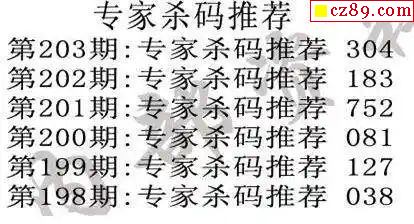 专家杀码推荐
cz89.com
第203期:专家杀码推荐 304
第202期:专家杀码推荐 183
第201期:专家杀码推荐 752
第200期:专家杀码推荐 081
第199期:专家杀码推荐 127
第198期:专家杀码推荐 038